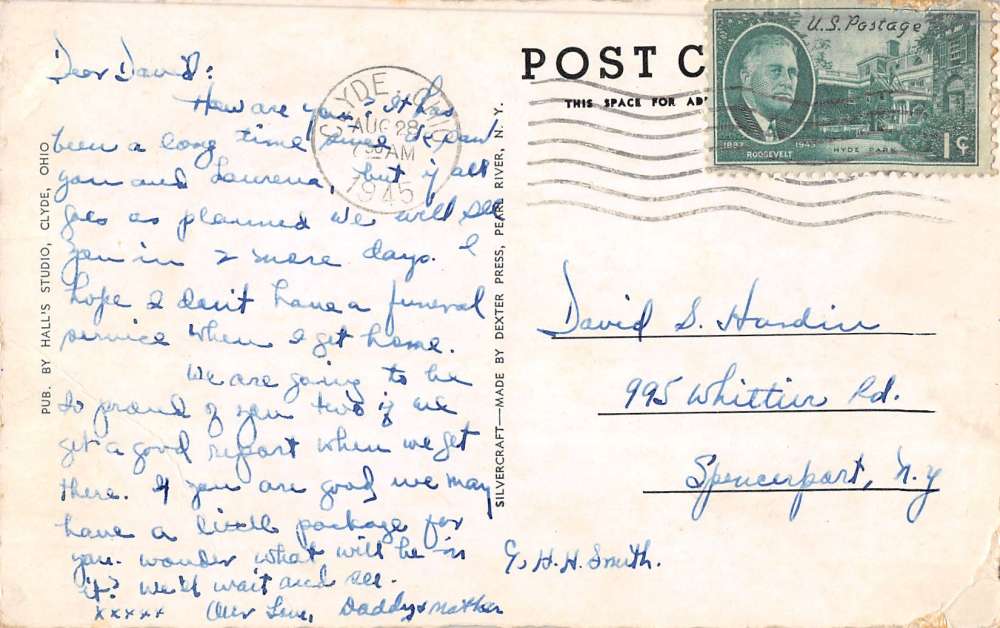 Dear David:
How are you? It has
been a long time since I saw
you and Laurena, but if all
goes as planned we will see
you in 2 more days. I
hope I don't have a funeral
service when I get home.
We are going to be
so proud of you two if we
get a good report when we get
there. If you are good we may
have a little package for
you. wonder what will be in
it? We'll wait and see.
xxxxx Our Love, Daddy & Mother
PUB. BY HALL'S STUDIO, CLYDE, OHIO
SILVERCRAFT—MADE BY DEXTER PRESS, PEARL RIVER, N. Y.
CLYDE
AUG 28
AM
1945
POST C
THIS SPACE FOR AD
U.S. Postage
1882 1945
ROOSEVELT
HYDE PARK
1¢
David S. Hardin
995 Whittier Rd.
Spencerport, N.Y
H. H. Smith.